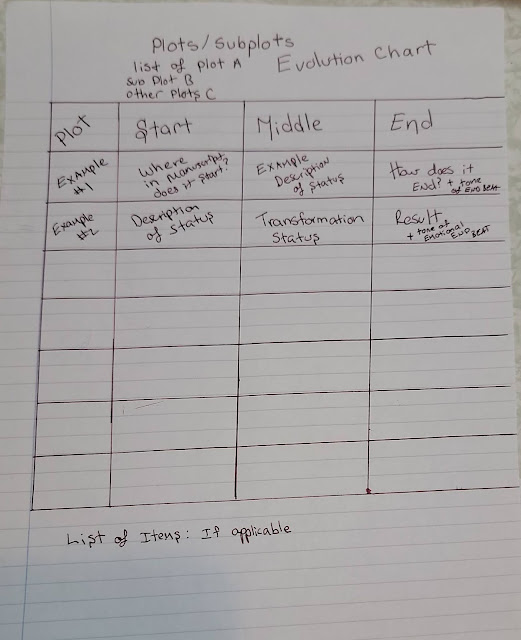 Plots/Subplots
list of plot A
Evolution Chart
Sub Plot B
other Plots C
Plot
Start
Middle
End
Example
#1
Where
in manuscript,
does it start?
Example
Description
of status
How does it
End? + tone
of END BEAT
Example
#2
Description
of status
Transformation
Status
Result
+ tone of
Emotional
END BEAT
List of Items: If applicable